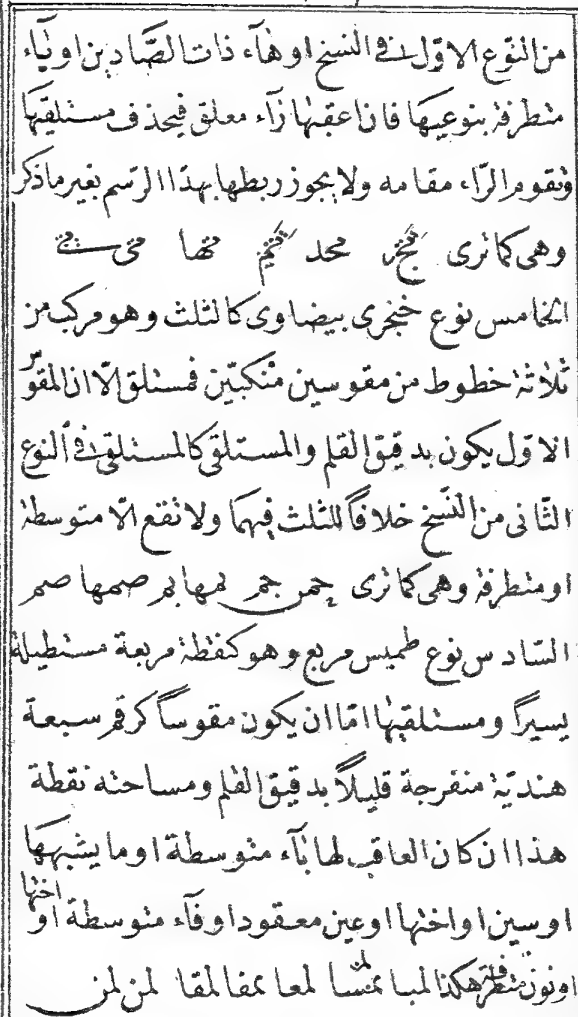 من النوع الاوّل فى النسخ او هآء ذات الصّادين او يآء
متطرفة بنوعيها فان اعقبها رآء معلق فيحذف مستلقيها
وتقوم الرّاء مقامه ولا يجوز ربطها بهذا الرسم بغير ماذكر
وهى كماترى محمد تها متى
الخامس نوع خنجرى بيضاوى كالثلث وهو مركب من
ثلاثة خطوط من مقوسين منكبّين فمستلق الّا ان المقوّس
الاول يكون بدقيق القلم والمستلقى كالمستلقى فى النوع
الثّانى من النّسخ خلافاً للثلث فيهما ولا تقع الّا متوسطة
او متطرفة وهى كماترى جمن جم لمها بم صمها صم
السّادس نوع طميس مربع وهو كنقطة مربعة مستطيلة
يسيراً ومستلقيها امّا ان يكون مقوساً كرقم سبعة
هنديّة منفرجة قليلاً بدقيق القلم ومساحته نقطة
هذا ان كان العاقب لها بآء متوسطة او ما يشبهها
او سين او اختها او عين معقود او فآء متوسطة او اختها
او نون متطرفة هكذا لمبا لمسا لمعا لمفا لمقا لمن لمن